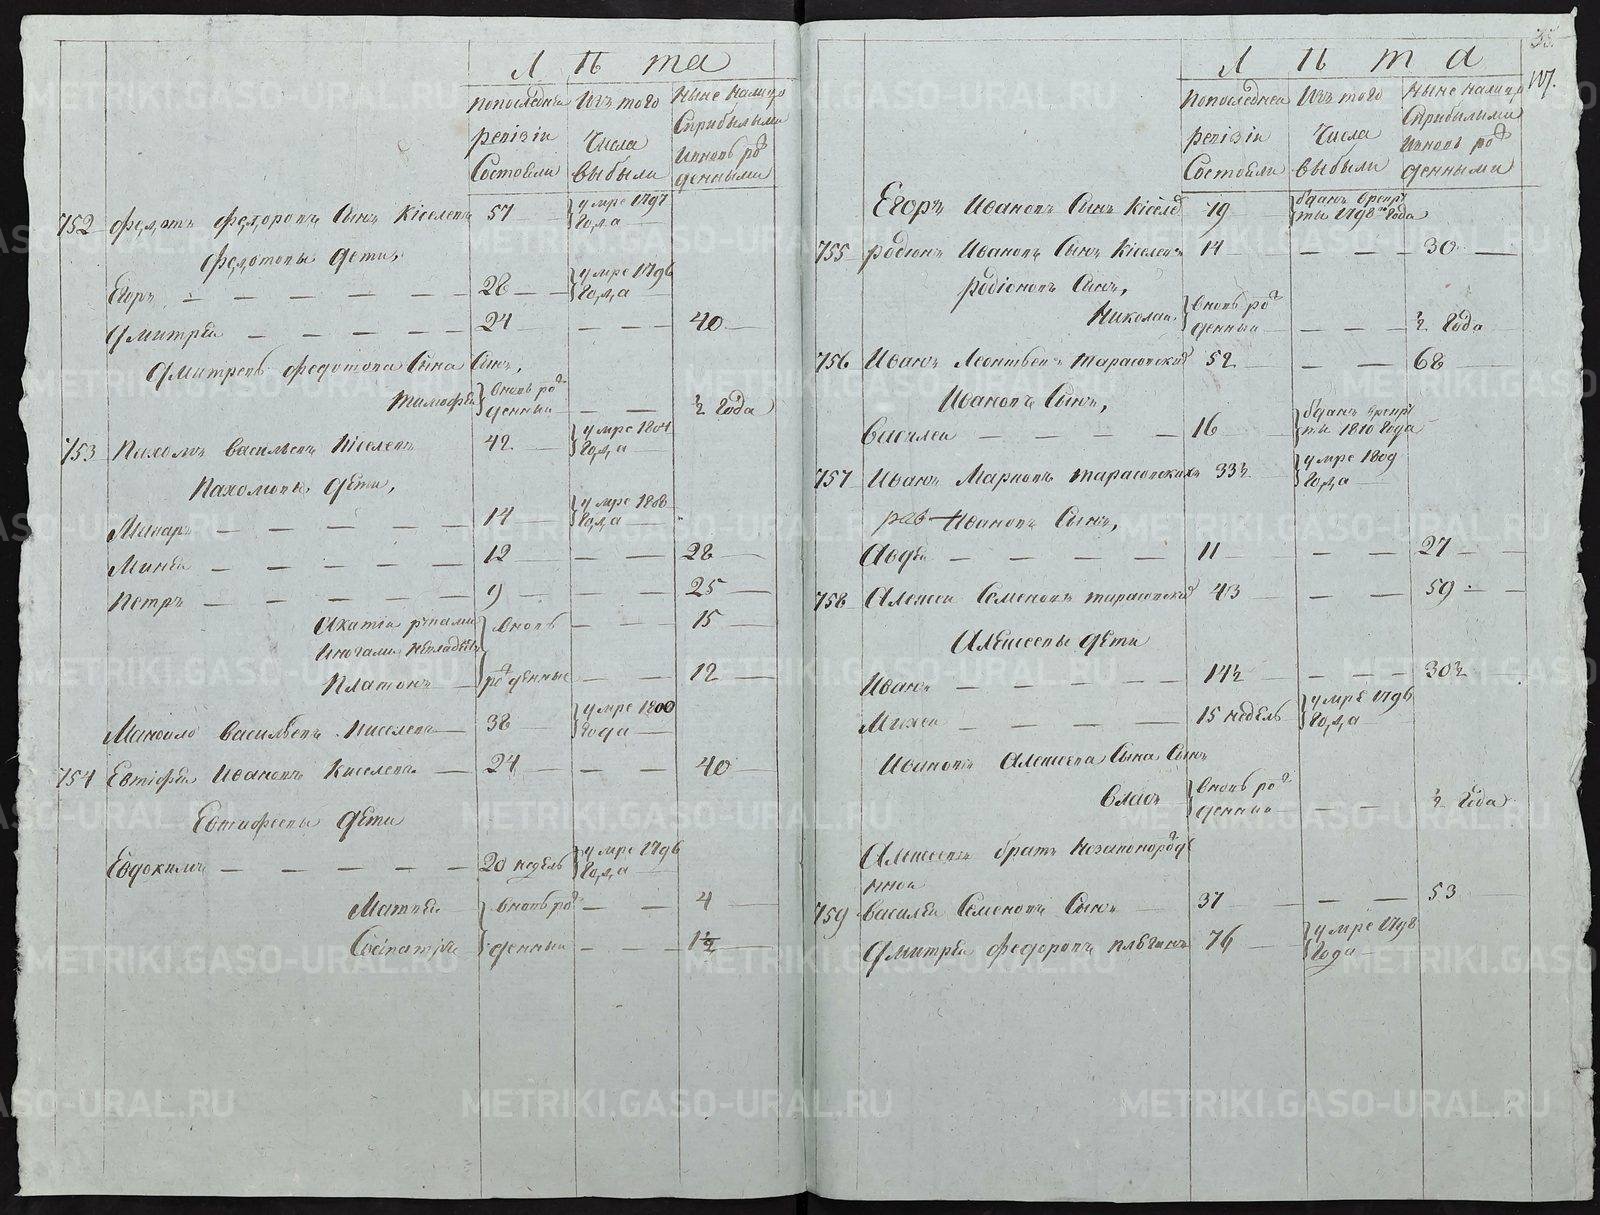 Лѣта
Попоследнеи Изъ того Ныне налицо
ревізіи Числа Сприбылыми
Состояли выбыли ивновь ро
жденными
752 Федотъ Федоровъ Сынъ Кіселевъ 57 умре 1797
Года
Федотовы дети,
Егоръ — — — — — 28 умре 1796
Года
Дмитрей — — — — — 24 — — — 40
Дмитреевъ Федотова Сына Сынъ,
Тимофей вновь ро
жденный — — ½ Года
753 Пахомъ Васильевъ Кіселевъ 42 умре 1804
Года
Пахомовы дети,
Макаръ — — — — 14 умре 1808
Года
Миней — — — — — 12 — — — 28
Петръ — — — — — 9 — — — 25
Акатіи руками вновь — — — 15
иногами невладѣетъ
Платонъ — рожденные — — 12
Мануило Васильевъ Киселевъ — 38 умре 1800
Года
754 Евтіфей Ивановъ Киселевъ — 24 — — — 40
Евтифеевы дети
Евдокимъ — — — — — 20 недѣль умре 1796
Года
Матвей вновь ро — — 4
Сосіпатръ жденныи — — 1½
35.
107.
Лѣта
Попоследнеи Изъ того Ныне налицо
ревізіи Числа Сприбылыми
Состояли выбыли ивновь ро
жденными
Егоръ Ивановъ Сынъ Кіселев 19 Отданъ врекру
ты 1798го Года
755 Родіонъ Ивановъ Сынъ Кіселевъ 14 — — — 30
Родіоновъ Сынъ,
Николаи вновь ро
жденный — — ½ Года
756 Иванъ Леонтьевъ Тарасовских 52 — — 68
Ивановъ Сынъ,
Василеи — — — — 16 Отданъ врекру
ты 1810 Года
757 Иванъ Марковъ Тарасовскихъ 33½ умре 1809
Года
Ивановъ Сынъ,
Авдей — — — — — 11 — — 27
758 Алексеи Семеновъ Тарасовских 43 — — — 59
Алексеевы дети
Иванъ — — — — — 14½ — — — 30½
Михеи — — — — 15 недель умре 1796
Года
Ивановъ Алексеева Сына Сынъ
Власъ вновь ро
жденный — — ½ Года
Алексеевъ братъ Незаконорожде
нной
759 Василеи Семеновъ Сынъ — 37 — — — 53
Дмитрей Федоровъ 76 умре 1798
Года
METRIKI.GASO-URAL.RU